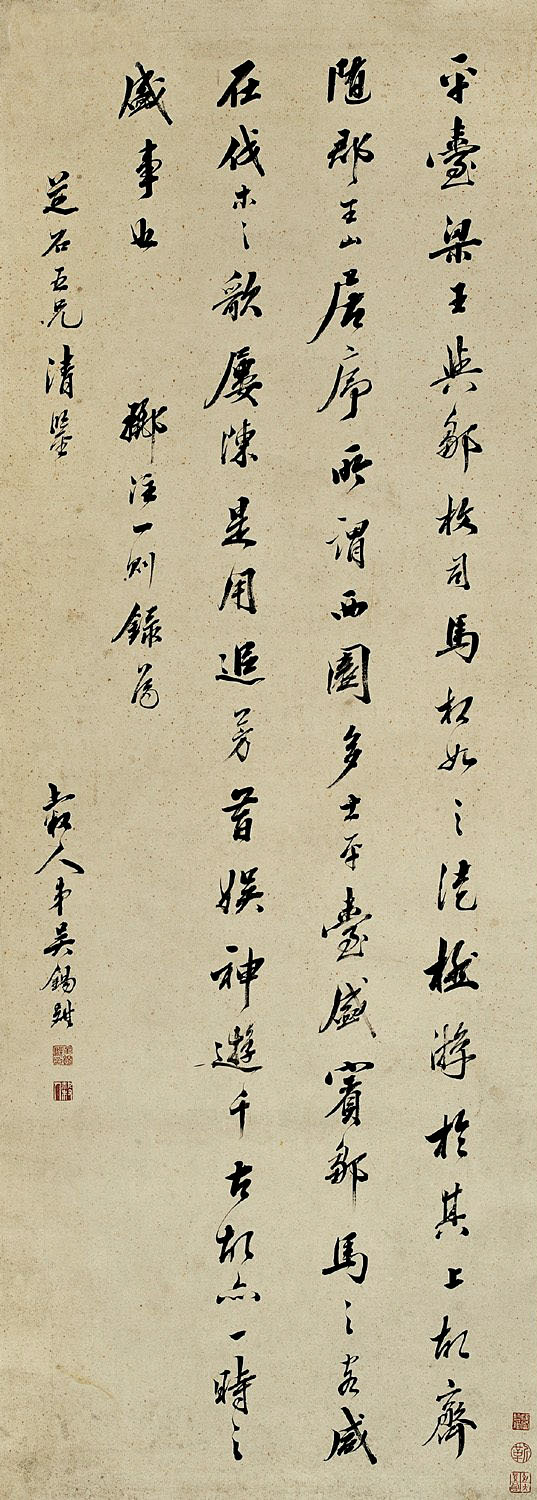 平臺梁王與鄒枚司馬相如之徒極游於其上故齊
隨郡王山居序所謂西園多士平臺盛賓鄒馬之客咸
在伐木之歌屢陳是用追芳昔娛神遊千古故亦一時之
盛事也 酈注一則錄爲
芝石五兄清鑒
穀人弟吳錫麒